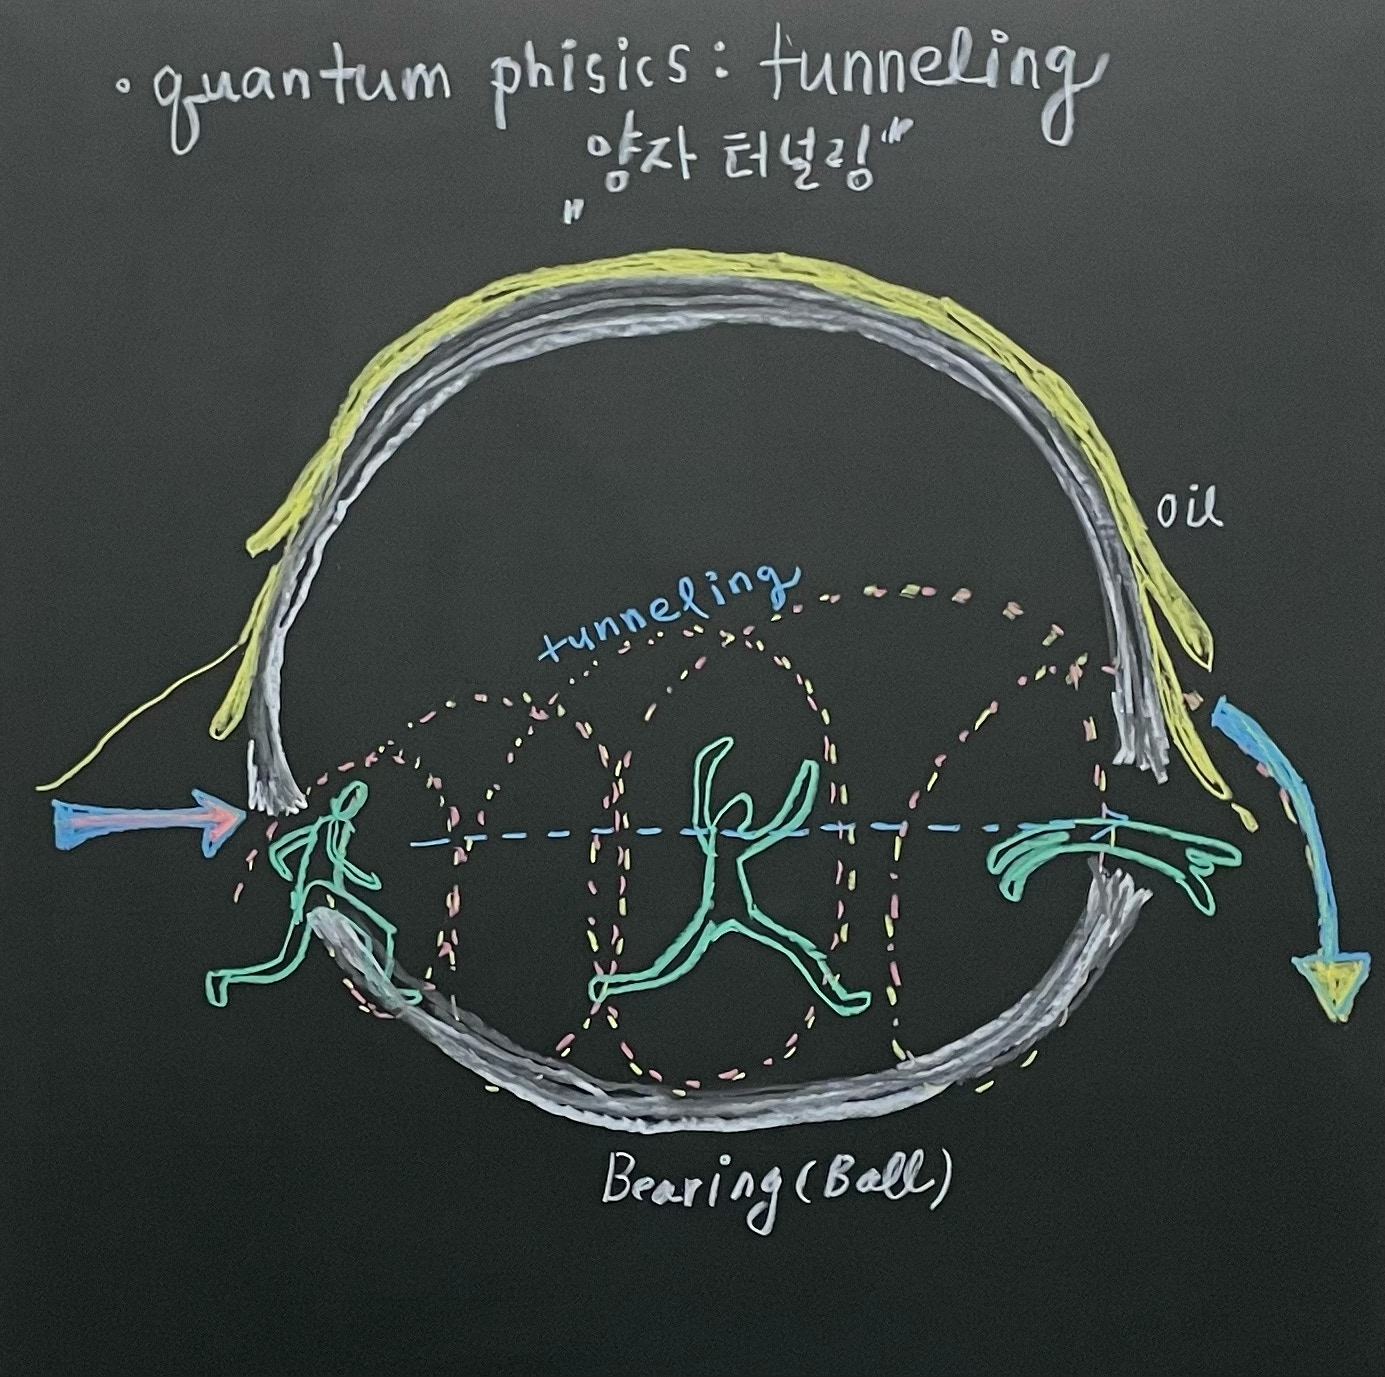 • quantum phisics: tunneling
"양자 터널링"
oil
tunneling
Bearing (Ball)